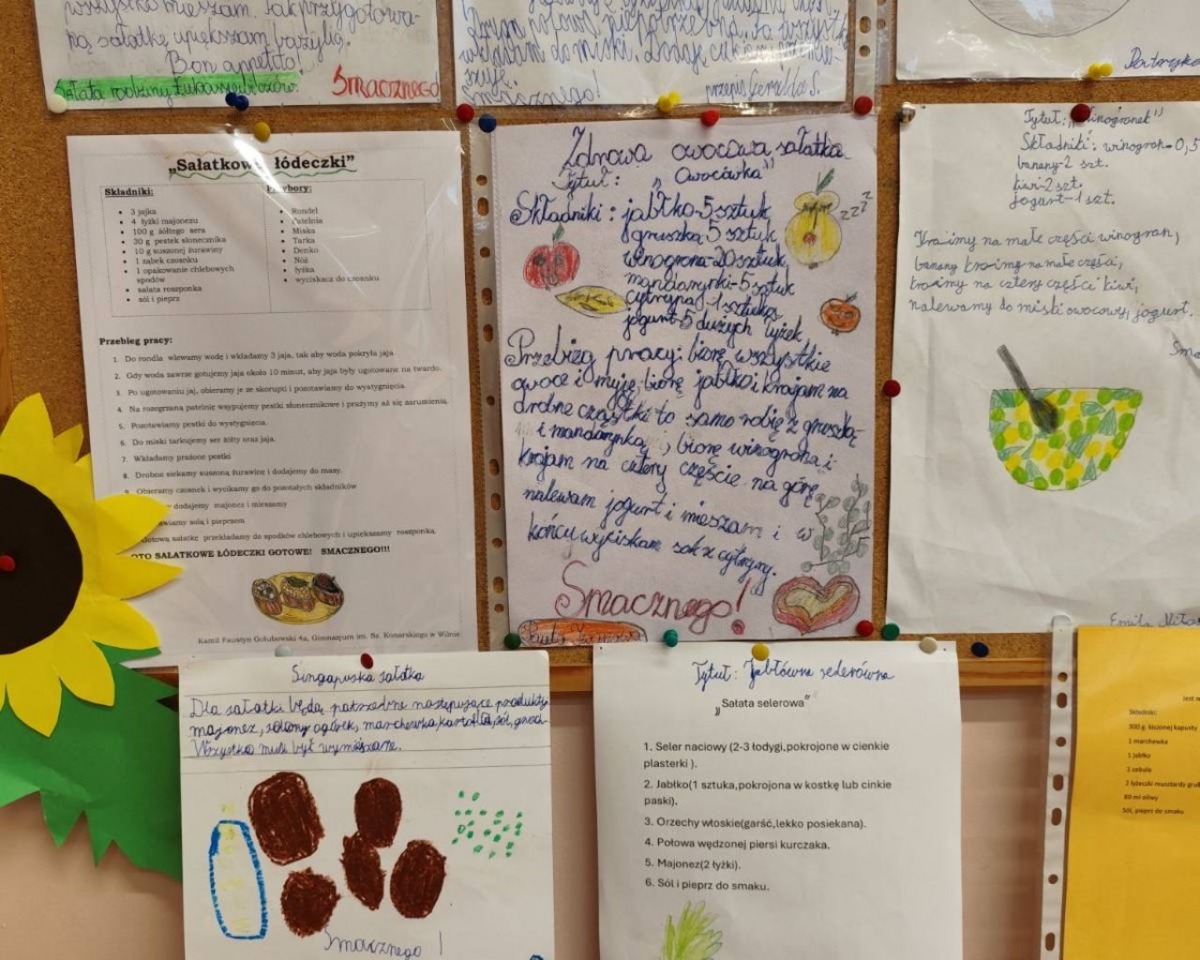 wszystko mieszam. Tak przygotowa-
ną sałatkę upiększam bazylią.
Bon appetito!
Sałata rodziny
Smacznego
Druga połowa niepotrzebna. Ta wszystk
wkładam do miski.
smacznego!
przepis Geralda S.
Patryk
„Sałatkowe łódeczki”
Składniki:
3 jajka
4 łyżki majonezu
100 g żółtego sera
30 g pestek słonecznika
10 g suszonej żurawiny
1 ząbek czosnku
1 opakowanie chlebowych
spodów
sałata roszponka
sól i pieprz
Przybory:
Rondel
Patelnia
Miska
Tarka
Denko
Nóż
łyżka
wyciskacz do czosnku
Przebieg pracy:
1. Do rondla wlewamy wodę i wkładamy 3 jaja, tak aby woda pokryła jaja
2. Gdy woda zawrze gotujemy jaja około 10 minut, aby jaja były ugotowane na twardo.
3. Po ugotowaniu jaj, obieramy je ze skorupti i pozostawiamy do wystygnięcia.
4. Na rozegrzaną patelnię wsypujemy pestki słonecznikowe i prażymy aż się zarumienią.
5. Pozostawiamy pestki do wystygnięcia.
6. Do miski tarkujemy ser żółty oraz jaja.
7. Wkładamy prażone pestki
8. Drobno siekamy suszoną żurawinę i dodajemy do masy.
9. Obieramy czosnek i wycikamy go do pozostałych składników
dodajemy majonez i mieszamy
wiamy solą i pieprzem
Gotową sałatkę przekładamy do spodków chlebowych i upiększamy roszponką.
OTO SAŁATKOWE ŁÓDECZKI GOTOWE! SMACZNEGO!!!
Kamil Faustyn Gołubowski 4a, Gimnazjum im. Sz. Konarskiego w Wilnie
Zdrowa owocowa sałatka
Tytuł: „Owocówka”
Składniki: jabłko-5 sztuk
gruszka 5 sztuk
winogrona-20 sztuk
mandarynki-5 sztuk
cytryna-1 sztuka
jogurt-5 dużych łyżek
zzz
Przebieg pracy: biorę wszystkie
owoce i myję, biorę jabłko i krajam na
drobne cząstki to samo robię z gruszką
i mandarynką, biorę winogrona i
krajam na cztery części na górę
nalewam jogurt i mieszam i w
końcu wyciskam sok z cytryny.
Smacznego!
Tytuł: „Winogronek”
Składniki: winogron-0,5
banany-2 szt.
kiwi-2 szt.
jogurt-1 szt.
Kraimy na małe części winogran,
banany kraimy na małe części,
kraimy na cztery części kiwi,
nalewamy do miski owocowy jogurt.
Sma
Emila
Singapuska sałatka
Dla sałatki będą potrzebne następujące produkty
majonez, solony ogórek, marchewka, kartofla, sól, groch
Wszystko musi być wymieszane.
Smacznego!
Tytuł: Jabłówna selerówna
„Sałata selerowa”
1. Seler naciowy (2-3 łodygi,pokrojone w cienkie
plasterki ).
2. Jabłko(1 sztuka,pokrojona w kostkę lub cinkie
paski).
3. Orzechy włoskie(garść,lekko posiekana).
4. Połowa wędzonej piersi kurczaka.
5. Majonez(2 łyżki).
6. Sól i pieprz do smaku.
Składniki:
300 g. kiszonej kapusty
1 marchewka
1 jabłko
1 cebula
2 łyżeczki musztardy gru
80 ml oliwy
Sól, pieprz do smaku